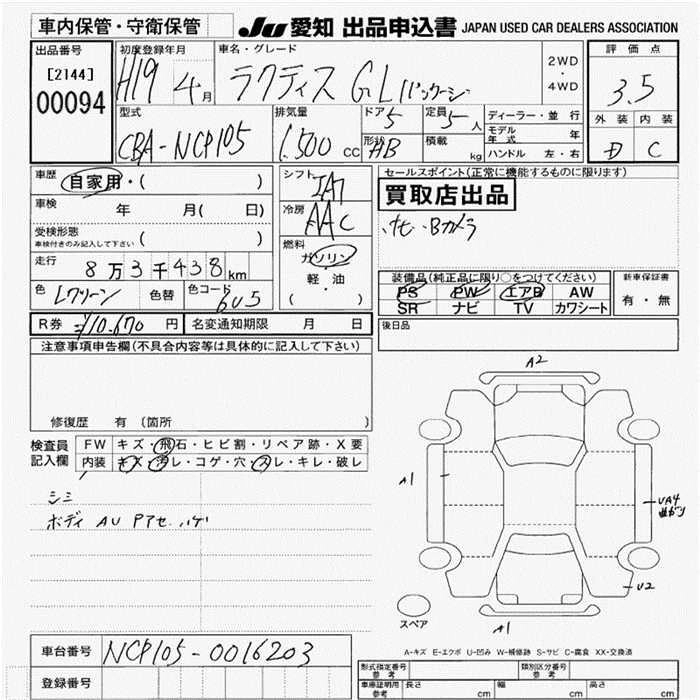 車内保管・守衛保管
JU 愛知 出品申込書 JAPAN USED CAR DEALERS ASSOCIATION
出品番号
[2144]
00094
初度登録年月
H19 4月
車名・グレード
ラクティス G Lパッケージ
2WD
・
4WD
評価点
3.5
外装 内装
D C
型式
CBA-NCP105
排気量
1.500 cc
ドア 5
形状 HB
定員 5人
積載 kg
ディーラー・並行
モデル年式 年
ハンドル 左・右
車歴 自家用・( )
車検 年 月( 日)
受検形態
車検付きのみ記入して下さい ( )
走行 8万3千438km
色 Lグリーン 色替 色コード 6U5
シフト IA7
冷房 AAC
燃料
ガソリン
軽・油
( )
セールスポイント(正常に機能するものに限ります)
買取店出品
・ナビ ・Bカメラ
装備品(純正品に限り○をつけてください)
PS PW エアB AW
SR ナビ TV カワシート
新車保証書
有・無
後日品
R券 ¥10.670 円 名変通知期限 月 日
注意事項申告欄(不具合内容等は具体的に記入して下さい)
修復歴 有 (箇所 )
検査員
記入欄
FW キズ・飛石・ヒビ割・リペア跡・X要
内装 キズ・汚レ・コゲ・穴・スレ・キレ・破レ
シミ
ボディ AU Pアセ ハゲ
A2
A1
UA4
曲ガリ
U2
A1
スペア
A-キズ E-エクボ U-凹み W-補修跡 S-サビ C-腐食 XX-交換済
車台番号 NCP105-0016203
登録番号
型式指定番号 参考
類別区分番号 参考
車庫証明用 参考 長さ cm 幅 cm 高さ cm